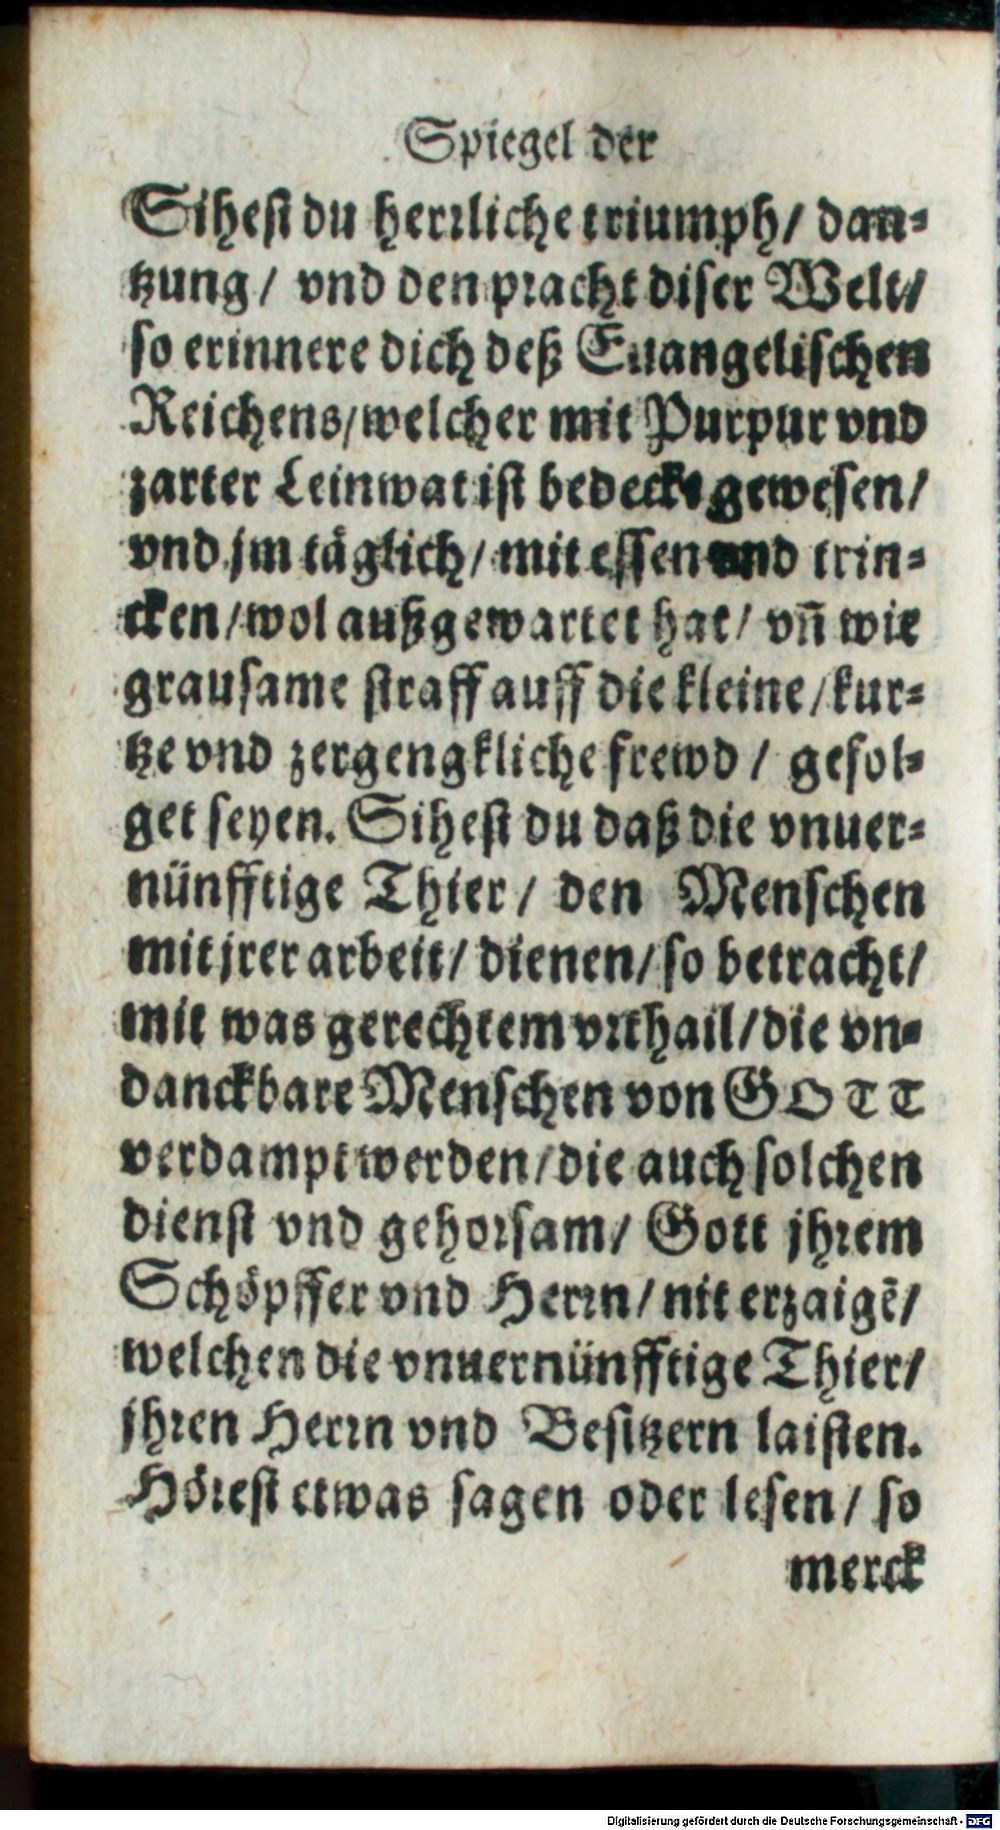 Spiegel der
Sihest du herrliche triumph/ dan-
tzung/ vnd den pracht diser Welt/
so erinnere dich deß Euangelischen
Reichens/welcher mit Purpur vnd
zarter Leinwat ist bedeckt gewesen/
vnd jm täglich/ mit essen vnd trin-
cken/wol außgewartet hat/ vñ wie
grausame straff auff die kleine/kur-
tze vnd zergengkliche frewd/ gefol-
get seyen. Sihest du daß die vnuer-
nünfftige Thier/ den Menschen
mit jrer arbeit/ dienen/ so betracht/
mit was gerechtem vrthail/die vn-
danckbare Menschen von GOTT
verdampt werden/die auch solchen
dienst vnd gehorsam/ Gott jhrem
Schöpffer vnd Herrn/ nit erzaigē/
welchen die vnuernünfftige Thier/
jhren Herrn vnd Besitzern laisten.
Hörest etwas sagen oder lesen/ so
merck
Digitalisierung gefördert durch die Deutsche Forschungsgemeinschaft - DFG